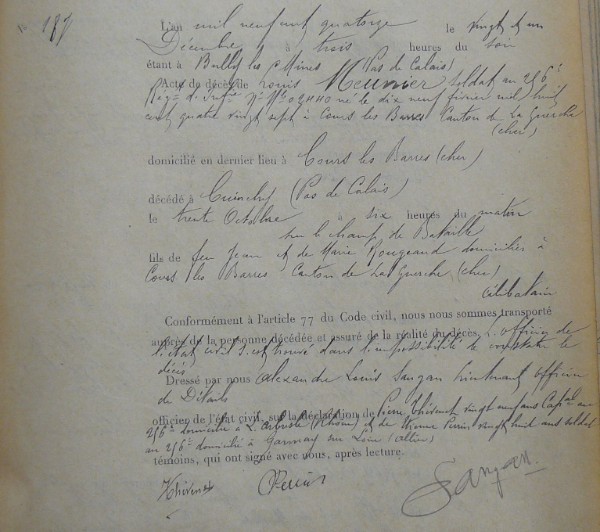 197
L'an mil neuf cent quatorze le vingt et un
Décembre à trois heures du soir
étant à Bully les Mines (Pas de Calais)
Acte de décès de Louis Meunier soldat au 256e
Régt d'Infie né le dix neuf février mil huit
cent quatre vingt sept à Cours les Barres Canton de La Guerche
(cher)
domicilié en dernier lieu à Cours les Barres (cher)
décédé à Cuinchy (Pas de Calais)
le trente Octobre à dix heures du matin
sur le champ de Bataille
fils de feu Jean et de Marie Rougeaud domiciliés à
Cours les Barres Canton de La Guerche (cher)
célibataire
Conformément à l'article 77 du Code civil, nous nous sommes transporté
auprès de la personne décédée et assuré de la réalité du décès. L'officier de
l'état civil s'est trouvé dans l'impossibilité de constater le
décès
Dressé par nous Alexandre Louis Sangan lieutenant officier
de Détails
officier de l'état civil, sur la déclaration de Pierre Thévenet, vingt neuf ans Caporal au
256e domicilié à L'Arbresle (Rhône) et de Etienne Perrin vingt huit ans soldat
au 256e domicilié à Gannay sur Loire (allier)
témoins, qui ont signé avec nous, après lecture.
Thévenet Perrin Sangan